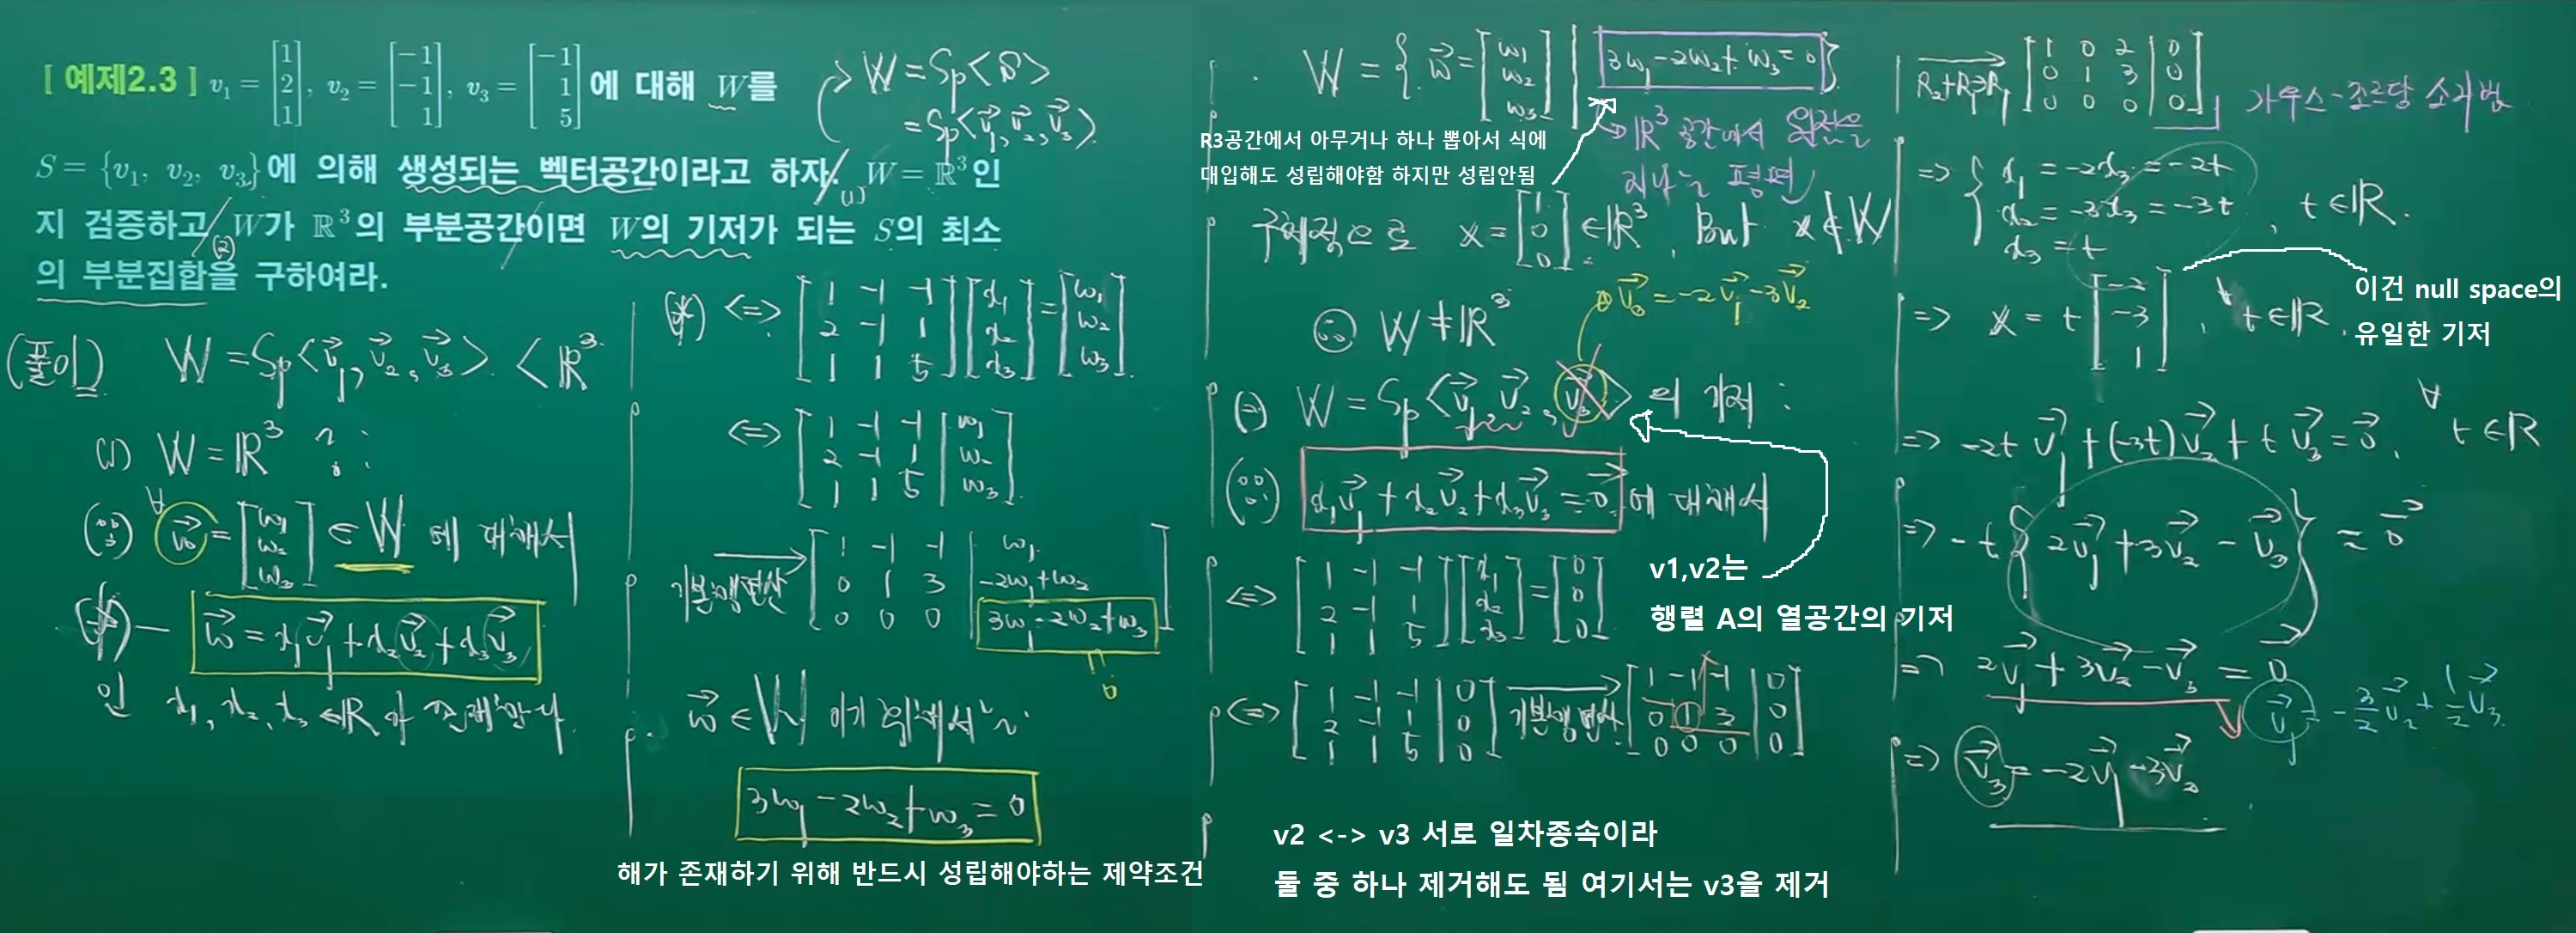 [ 예제2.3 ] v₁ = [1 2 1], v₂ = [-1 -1 1], v₃ = [-1 1 5] 에 대해 W를
S = {v₁, v₂, v₃}에 의해 생성되는 벡터공간이라고 하자. W = ℝ³인
지 검증하고 W가 ℝ³의 부분공간이면 W의 기저가 되는 S의 최소
의 부분집합을 구하여라.
(1)
(2)
W = Sp<S>
= Sp<v₁, v₂, v₃>
(풀이) W = Sp<v₁, v₂, v₃> < ℝ³
(1) W = ℝ³ ? :
(∵) ∀w = [w₁ w₂ w₃] ∈ W 에 대해서
(*) — w = x₁v₁ + x₂v₂ + x₃v₃
인 x₁, x₂, x₃ ∈ ℝ 가 존재한다
(*) <=> [1 -1 -1; 2 -1 1; 1 1 5] [x₁ x₂ x₃] = [w₁ w₂ w₃]
<=> [1 -1 -1 | w₁; 2 -1 1 | w₂; 1 1 5 | w₃]
기본행연산 [1 -1 -1 | w₁; 0 1 3 | -2w₁+w₂; 0 0 0 | 3w₁-2w₂+w₃]
0
w ∈ W 이기 위해서는
3w₁ - 2w₂ + w₃ = 0
해가 존재하기 위해 반드시 성립해야하는 제약조건
W = { w = [w₁ w₂ w₃] | 3w₁ - 2w₂ + w₃ = 0 }
R3공간에서 아무거나 하나 뽑아서 식에
대입해도 성립해야함 하지만 성립안됨
ℝ³ 공간에서 원점을
지나는 평면
구체적으로 x = [1 0 0] ∈ ℝ³, But x ∉ W
v₃ = -2v₁ - 3v₂
∴ W ≠ ℝ³
(2) W = Sp<v₁, v₂, v₃> 의 기저 :
(∵) x₁v₁ + x₂v₂ + x₃v₃ = 0 에 대해서
v1,v2는
행렬 A의 열공간의 기저
<=> [1 -1 -1; 2 -1 1; 1 1 5] [x₁ x₂ x₃] = [0 0 0]
<=> [1 -1 -1 | 0; 2 -1 1 | 0; 1 1 5 | 0] 기본행연산 [1 -1 -1 | 0; 0 1 3 | 0; 0 0 0 | 0]
v2 <-> v3 서로 일차종속이라
둘 중 하나 제거해도 됨 여기서는 v3을 제거
R₂+R₁→R₁ [1 0 2 | 0; 0 1 3 | 0; 0 0 0 | 0] 가우스-조르당 소거법
=> { x₁ = -2x₃ = -2t
x₂ = -3x₃ = -3t , t ∈ ℝ.
x₃ = t
이건 null space의
유일한 기저
=> x = t [-2 -3 1], ∀t ∈ ℝ.
=> -2t v₁ + (-3t)v₂ + t v₃ = 0, ∀t ∈ ℝ
=> -t { 2v₁ + 3v₂ - v₃ } = 0
=> 2v₁ + 3v₂ - v₃ = 0
v₁ = -3/2 v₂ + 1/2 v₃
=> v₃ = -2v₁ - 3v₂